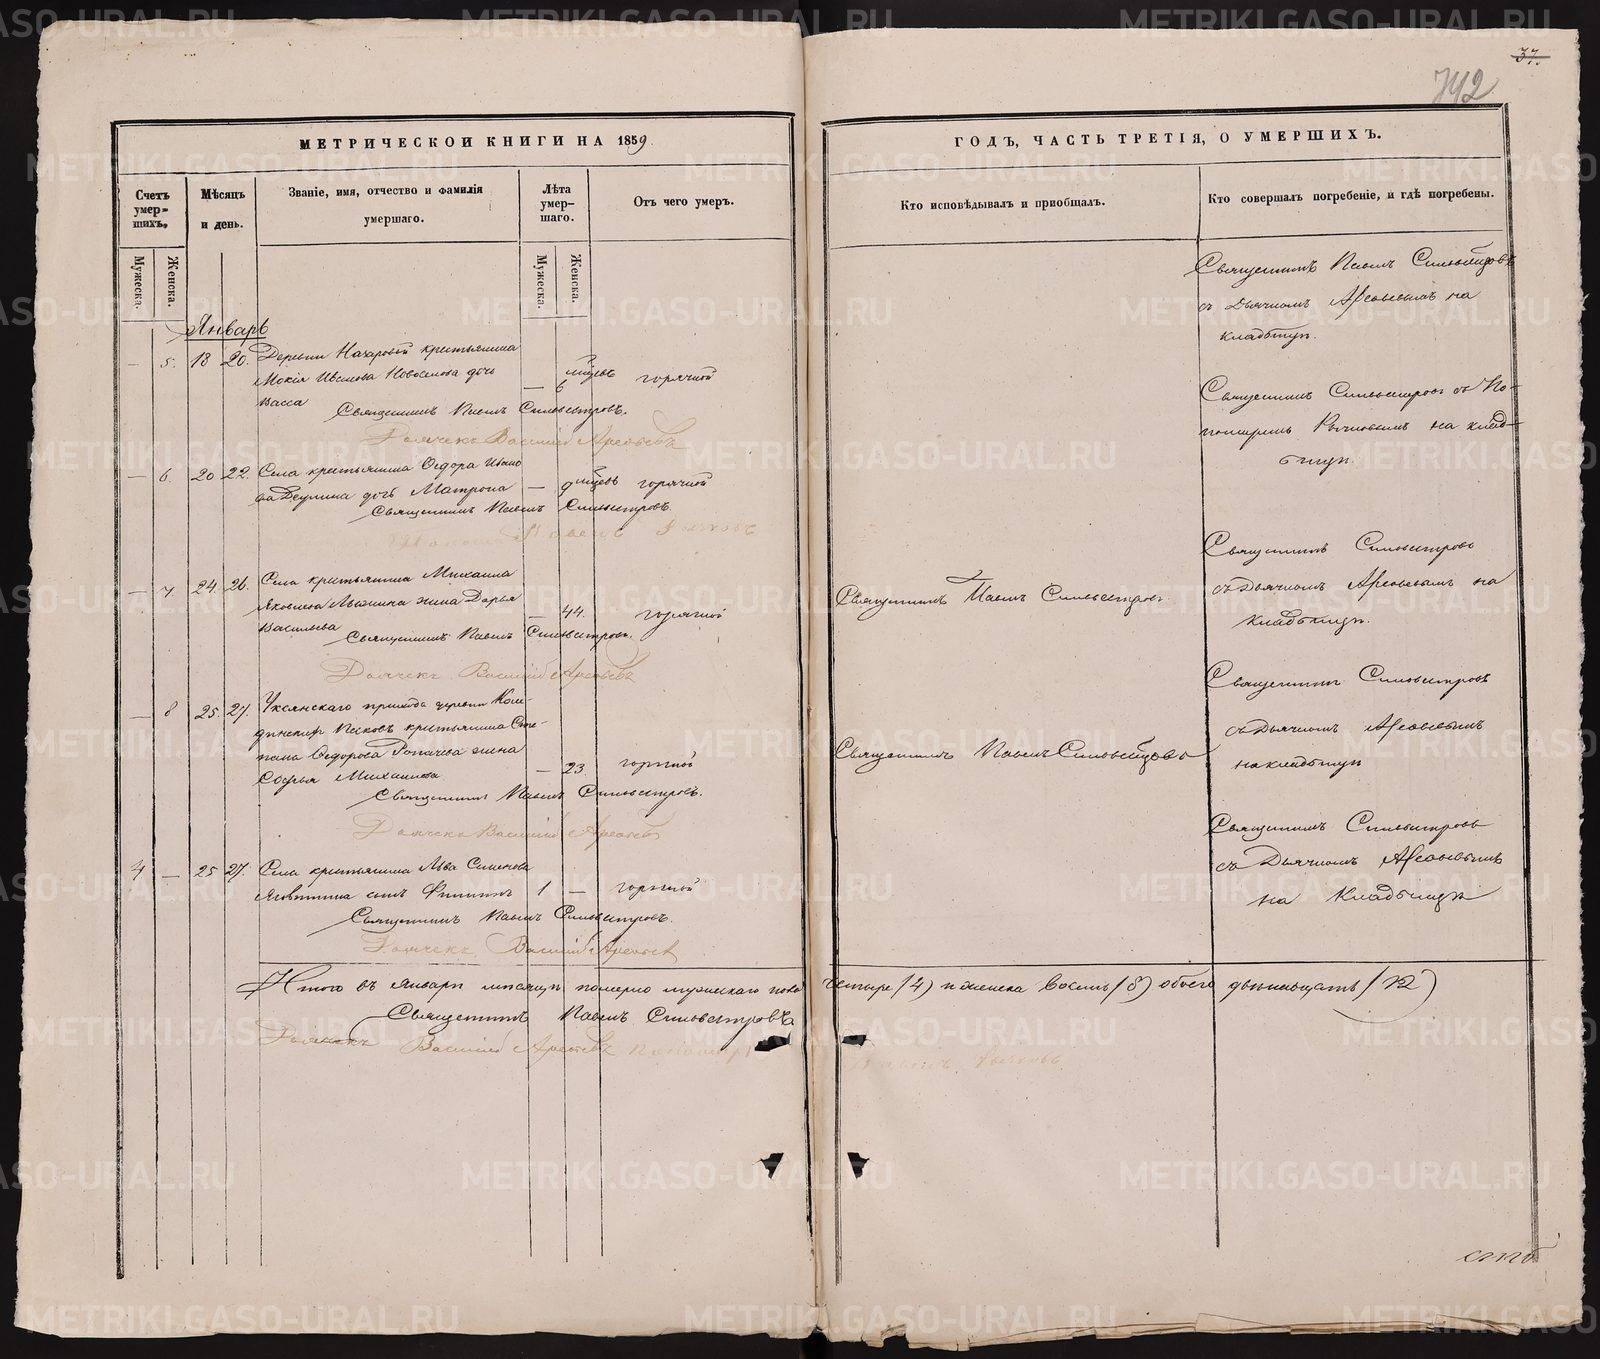 37.
742
МЕТРИЧЕСКОЙ КНИГИ НА 1859
ГОДЪ, ЧАСТЬ ТРЕТІЯ, О УМЕРШИХЪ.
Счетъ умер-
шихъ.
Мѣсяцъ
и день.
Званіе, имя, отчество и фамилія
умершаго.
Лѣта
умер-
шаго.
Отъ чего умеръ.
Кто исповѣдывалъ и пріобщалъ.
Кто совершалъ погребеніе, и гдѣ погребены.
Мужеска.
Женска.
Мужеска.
Женска.
Январь
— 5. 18 20. Деревни крестьянина
Мокія Иванова дочь
Васса — 6 горячкой
Священникъ Павелъ Сильвестровъ.
Дьячекъ Василій Арсеньевъ
Священникъ Павелъ
съ Дьячкомъ Арсеньевымъ на
кладбищѣ.
— 6. 20 22. Села крестьянина Ѳедора Ивано
ва дочь Матрона — 9 горячкой
Священникъ Павелъ Сильвестровъ.
Павелъ
Священникъ Сильвестровъ съ По-
номаремъ на клад-
бищѣ.
— 7 24. 26. Села крестьянина Михаила
Яковлева жена Дарья
Васильева — 44. горячкой
Священникъ Павелъ Сильвестровъ.
Дьячекъ Василій Арсеньевъ
Священникъ Павелъ Сильвестровъ.
Священникъ Сильвестровъ
съ Дьячкомъ Арсеньевымъ на
кладбищѣ.
— 8 25. 27. Уксянскаго прихода деревни
крестьянина Сте-
пана Ѳедорова жена
Софья Михаилова — 23. горячкой
Священникъ Павелъ Сильвестровъ.
Дьячекъ Василій Арсеньевъ
Священникъ Павелъ
Священникъ Сильвестровъ
съ Дьячкомъ Арсеньевымъ
на кладбищѣ
4 — 25 27. Села крестьянина Льва Семенова
сынъ Филиппъ 1 — горячкой
Священникъ Павелъ Сильвестровъ.
Дьячекъ Василій Арсеньевъ
Священникъ Сильвестровъ
съ Дьячкомъ Арсеньевымъ
на Кладбищѣ
Итого въ Январѣ мѣсяцѣ померло мужескаго пола четыре (4) и женска восемь (8) обоего двенадцать (12)
Священникъ Павелъ Сильвестровъ
Дьячекъ Василій Арсеньевъ Пономарь Павелъ
METRIKI.GASO-URAL.RU